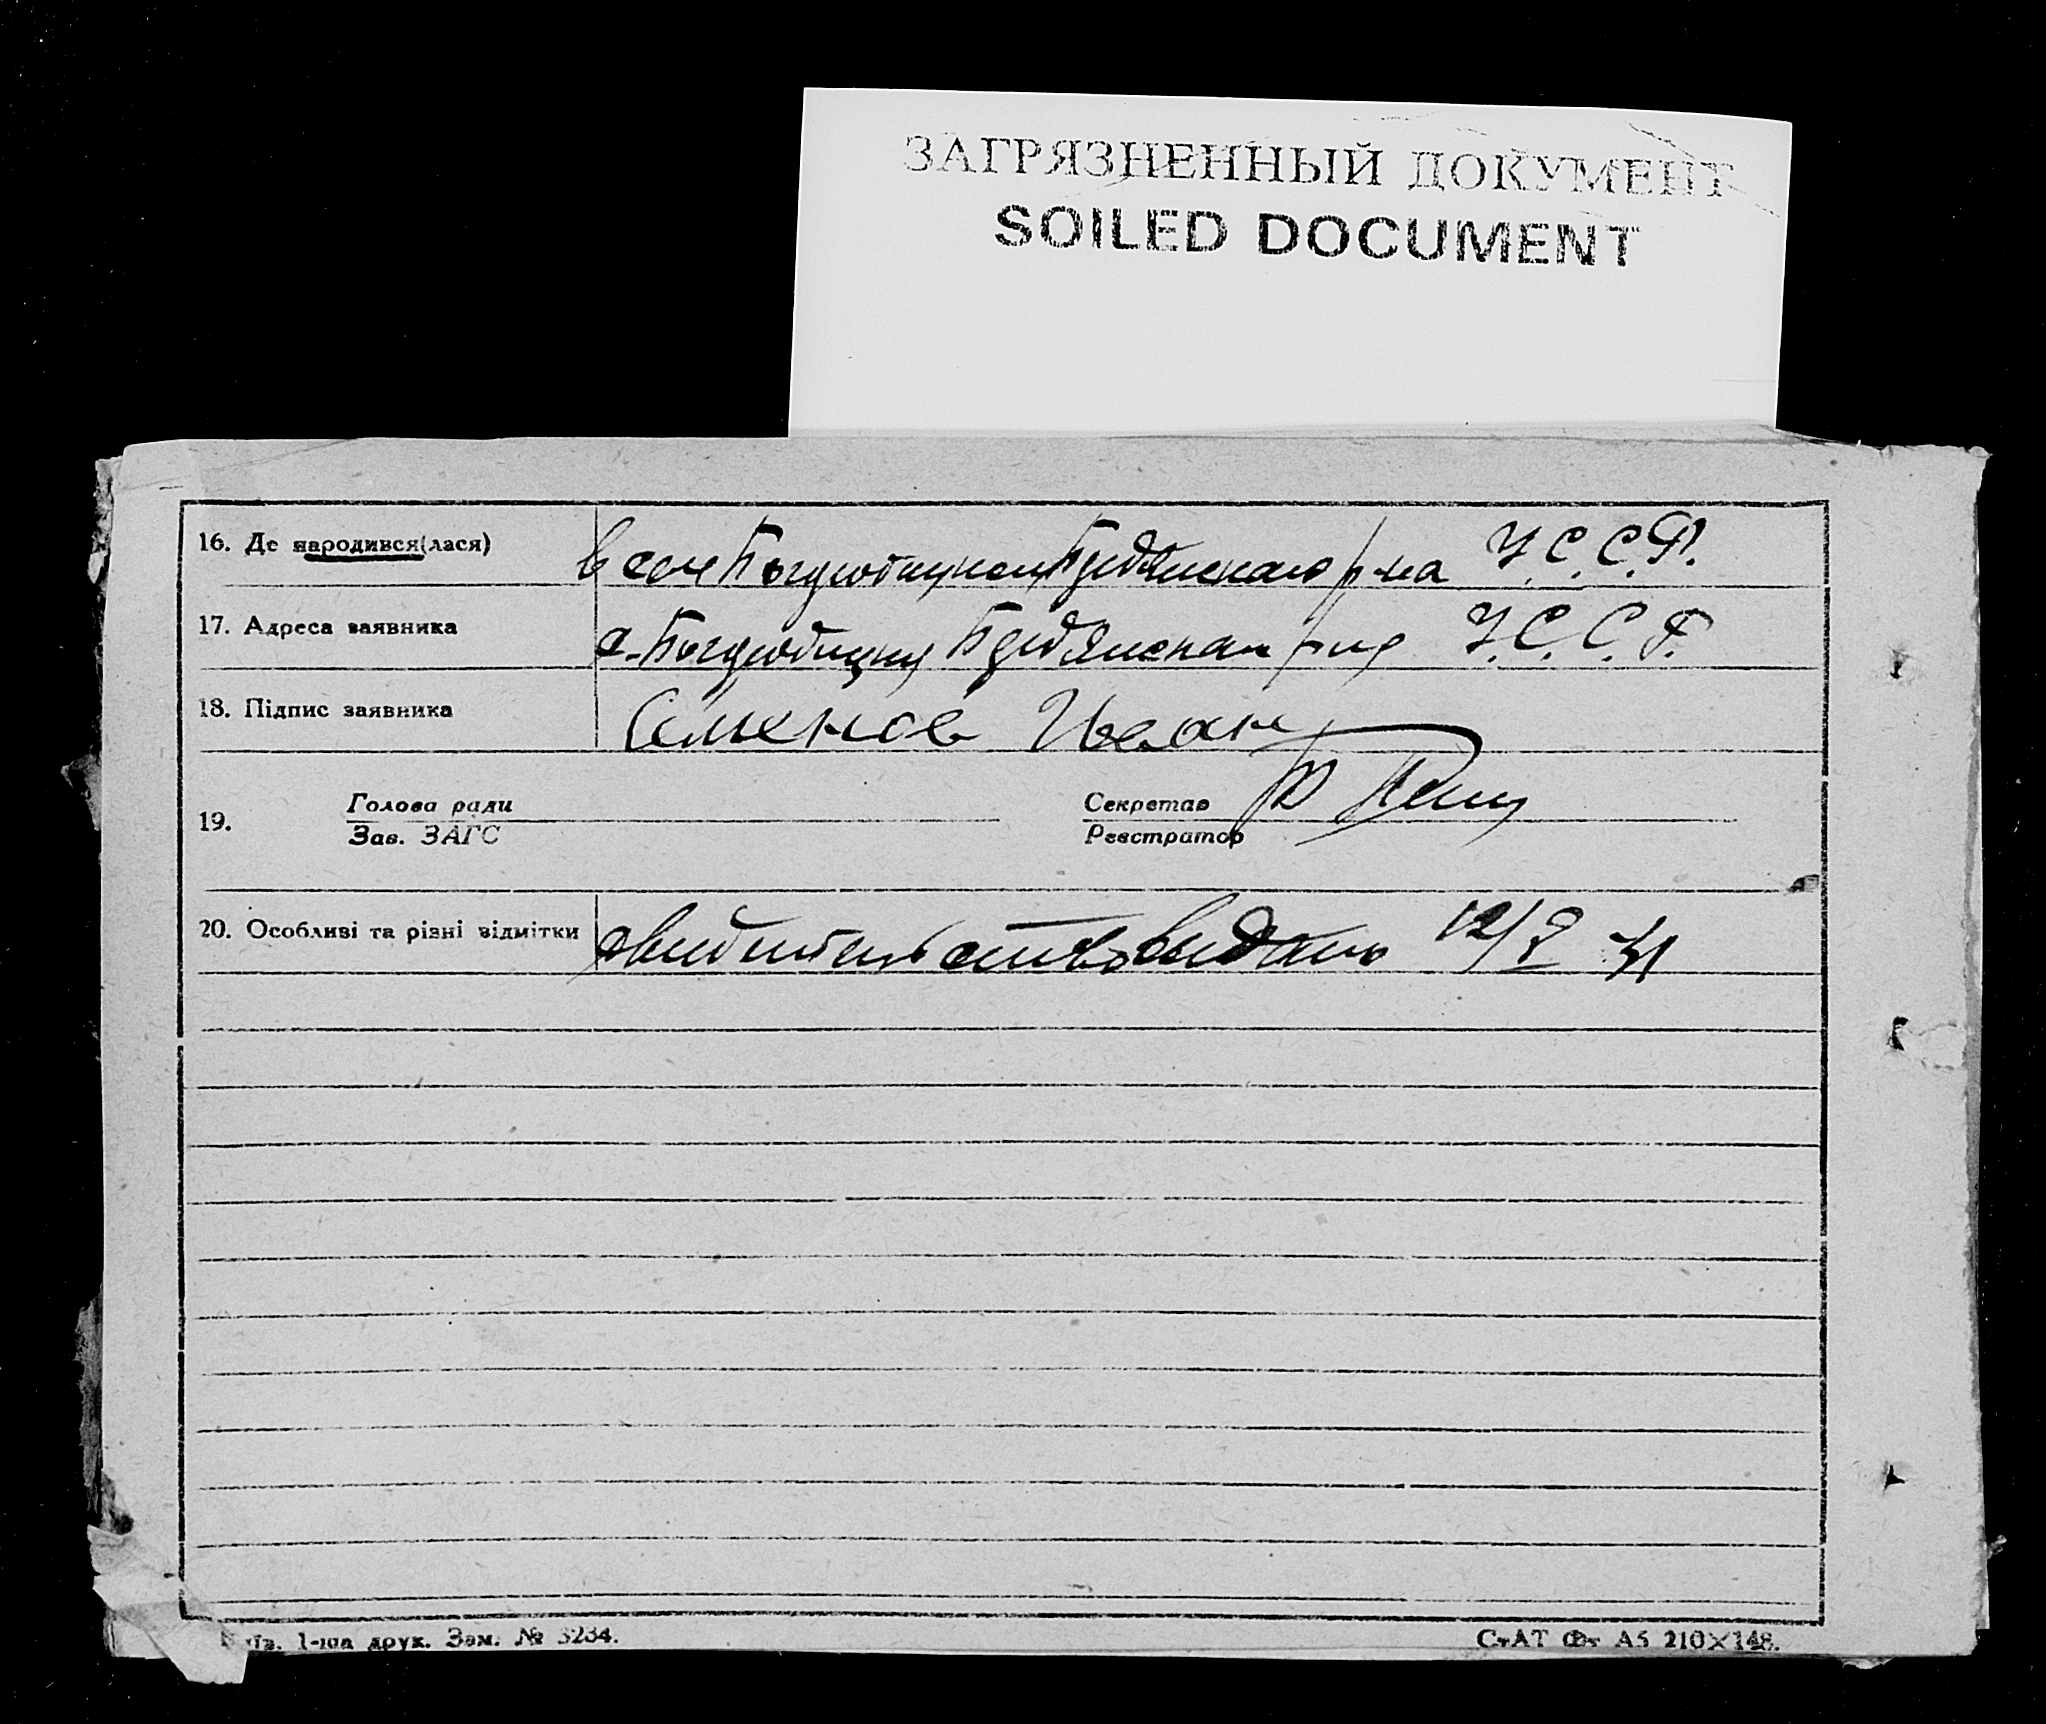 ЗАГРЯЗНЕННЫЙ ДОКУМЕНТ
SOILED DOCUMENT
16. Де народився(лася) в селе р-на У.С.С.Р.
17. Адреса заявника с. У.С.С.Р.
18. Підпис заявника Семенов Иван
19. Голова ради Секретар
Зав. ЗАГС Реєстратор
20. Особливі та різні відмітки свидительство выдано 12/
1-ша друк. Зам. № 3234. СтАТ Фт А5 210×148.